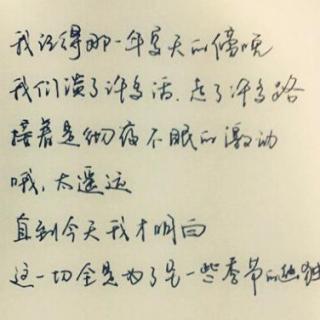 我记得那一年夏天的傍晚
我们读了许多话，走了许多路
接着是彻夜不眠的激动
哦，太遥远
直到今天我才明白
这一切全是为了某一些季节的